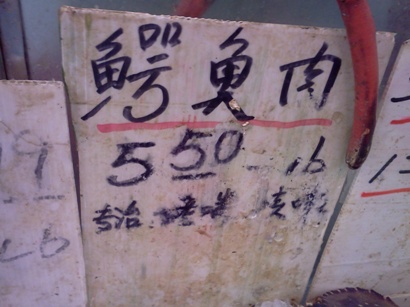 鳄魚肉
5 50 lb
专治 哮喘 咳嗽
9
lb